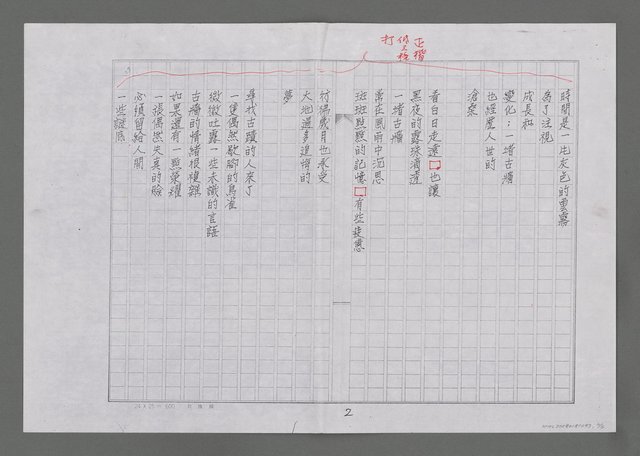 正楷
打
時間是一片灰色的雲霧
為了注視
成長和
變化；一堵古牆
也經歷人世的
滄桑
看白日走遠□也讓
黑夜的露珠滴濕
一堵古牆
常在風雨中沉思
斑斑點點的記憶□有些疲憊
彷彿歲月也承受
天地過多追憶的
夢
尋找古蹟的人來了
一隻偶然歇腳的鳥雀
微微吐露一些未識的言語
古牆的情緒很複雜
如果還有一點榮耀
一張偶然失真的臉
必須留給人間
一些謎底
24×25＝600
2